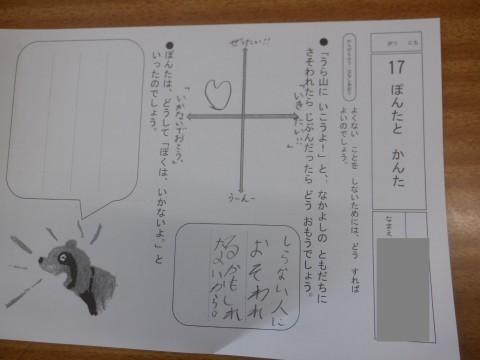 がつ にち
17 ぽんたと かんた
なまえ
よくない ことを しないためには、どう すれば
よいのでしょう。
●「うら山に いこうよ！」と、なかよしの ともだちに
さそわれたら じぶんだったら どう おもうでしょう。
ぜったい!!
「いきたい!!」
うーん…
「いかないでおこう。」
しらない人に
おそわれ
るかもしれ
ないから。
●ぽんたは、どうして「ぼくは、いかないよ。」と
いったのでしょう。